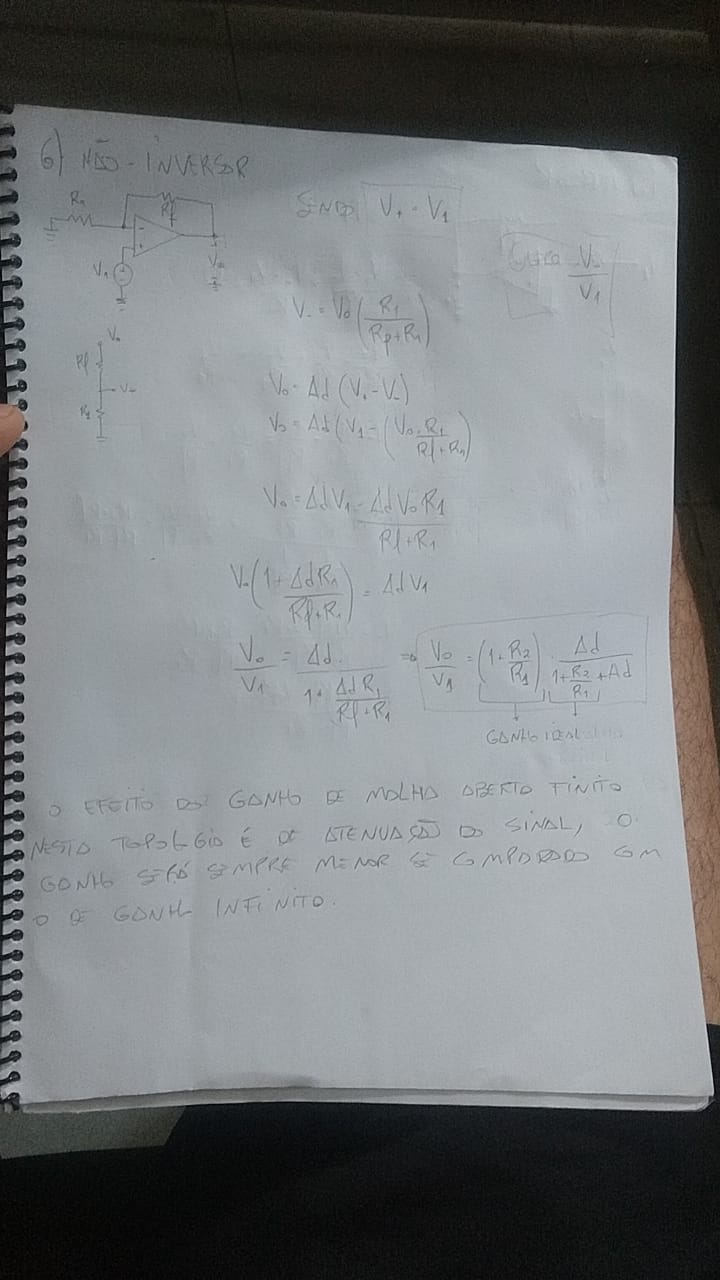 6) NÃO-INVERSOR
R1
Rf
V1
Vo
SENDO V+ = V1
Vo
V1
V- = Vo (R1 / (Rf+R1))
Vo
Rf
V-
R1
Vo = Ad (V+ - V-)
Vo = Ad (V1 - (Vo . R1 / (Rf+R1))
Vo = AdV1 - AdVoR1 / (Rf+R1)
Vo (1 + AdR1 / (Rf+R1)) = AdV1
Vo/V1 = Ad / (1 + AdR1 / (Rf+R1)) => Vo/V1 = (1 + R2/R1) . Ad / (1 + R2/R1 + Ad)
GANHO IDEAL
O EFEITO DO GANHO DE MALHA ABERTA FINITO
NESTA TOPOLOGIA É DE ATENUAÇÃO DO SINAL, O
GANHO SERÁ SEMPRE MENOR SE COMPARADO COM
O DE GANHO INFINITO.